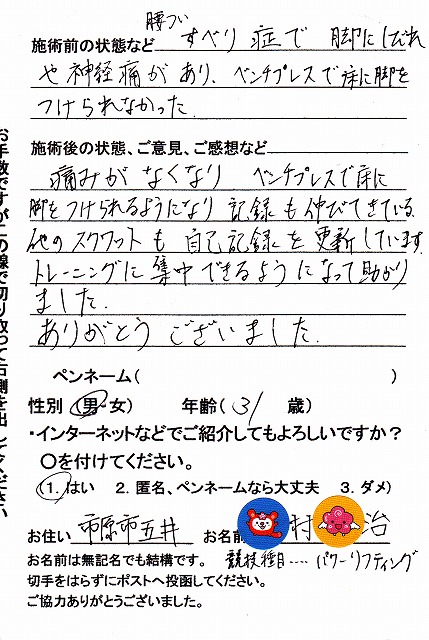 腰つい
施術前の状態など すべり症で 脚にしびれ
や神経痛があり、ベンチプレスで床に脚を
つけられなかった
施術後の状態、ご意見、ご感想など
痛みがなくなり ベンチプレスで床に
脚をつけられるようになり 記録も伸びてきている.
他のスクワットも自己記録を更新しています.
トレーニングに集中できるようになって助かり
ました.
ありがとうございました.
ペンネーム( )
性別(男・女) 年齢(31歳)
・インターネットなどでご紹介してもよろしいですか?
〇を付けてください。
(1. はい 2. 匿名、ペンネームなら大丈夫 3. ダメ)
お住い 市原市五井 お名前 村 治
お名前は無記名でも結構です。 競技種目....パワーリフティング
切手をはらずにポストへ投函してください。
ご協力ありがとうございました。
お手数ですがこの線で切り取って右側を出してください